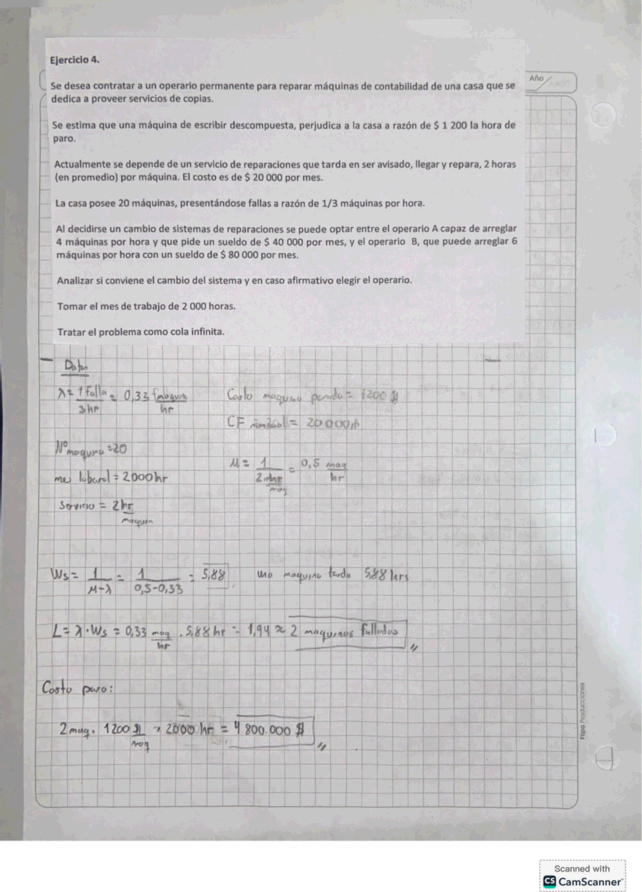 Ejercicio 4.
Año
Se desea contratar a un operario permanente para reparar máquinas de contabilidad de una casa que se
dedica a proveer servicios de copias.
Se estima que una máquina de escribir descompuesta, perjudica a la casa a razón de $ 1 200 la hora de
paro.
Actualmente se depende de un servicio de reparaciones que tarda en ser avisado, llegar y repara, 2 horas
(en promedio) por máquina. El costo es de $ 20 000 por mes.
La casa posee 20 máquinas, presentándose fallas a razón de 1/3 máquinas por hora.
Al decidirse un cambio de sistemas de reparaciones se puede optar entre el operario A capaz de arreglar
4 máquinas por hora y que pide un sueldo de $ 40 000 por mes, y el operario B, que puede arreglar 6
máquinas por hora con un sueldo de $ 80 000 por mes.
Analizar si conviene el cambio del sistema y en caso afirmativo elegir el operario.
Tomar el mes de trabajo de 2 000 horas.
Tratar el problema como cola infinita.
Datos
λ = 1 falla / 3 hr = 0,33 maquina / hr
Costo maquina parada = 1200 $
CF = 20 000 $
Nº maquina = 20
μ = 1 / 2 hr/maq = 0,5 maq / hr
mes laboral = 2000 hr
Servicio = 2 hr / maquina
Ws = 1 / μ-λ = 1 / 0,5-0,33 = 5,88 una maquina tarda 5,88 hrs
L = λ . Ws = 0,33 maq / hr . 5,88 hr = 1,94 ≈ 2 maquinas falladas
Costo paro:
2 maq. 1200 $ / maq . 2000 hr = 4 800 000 $
Producciones
Scanned with
CS CamScanner